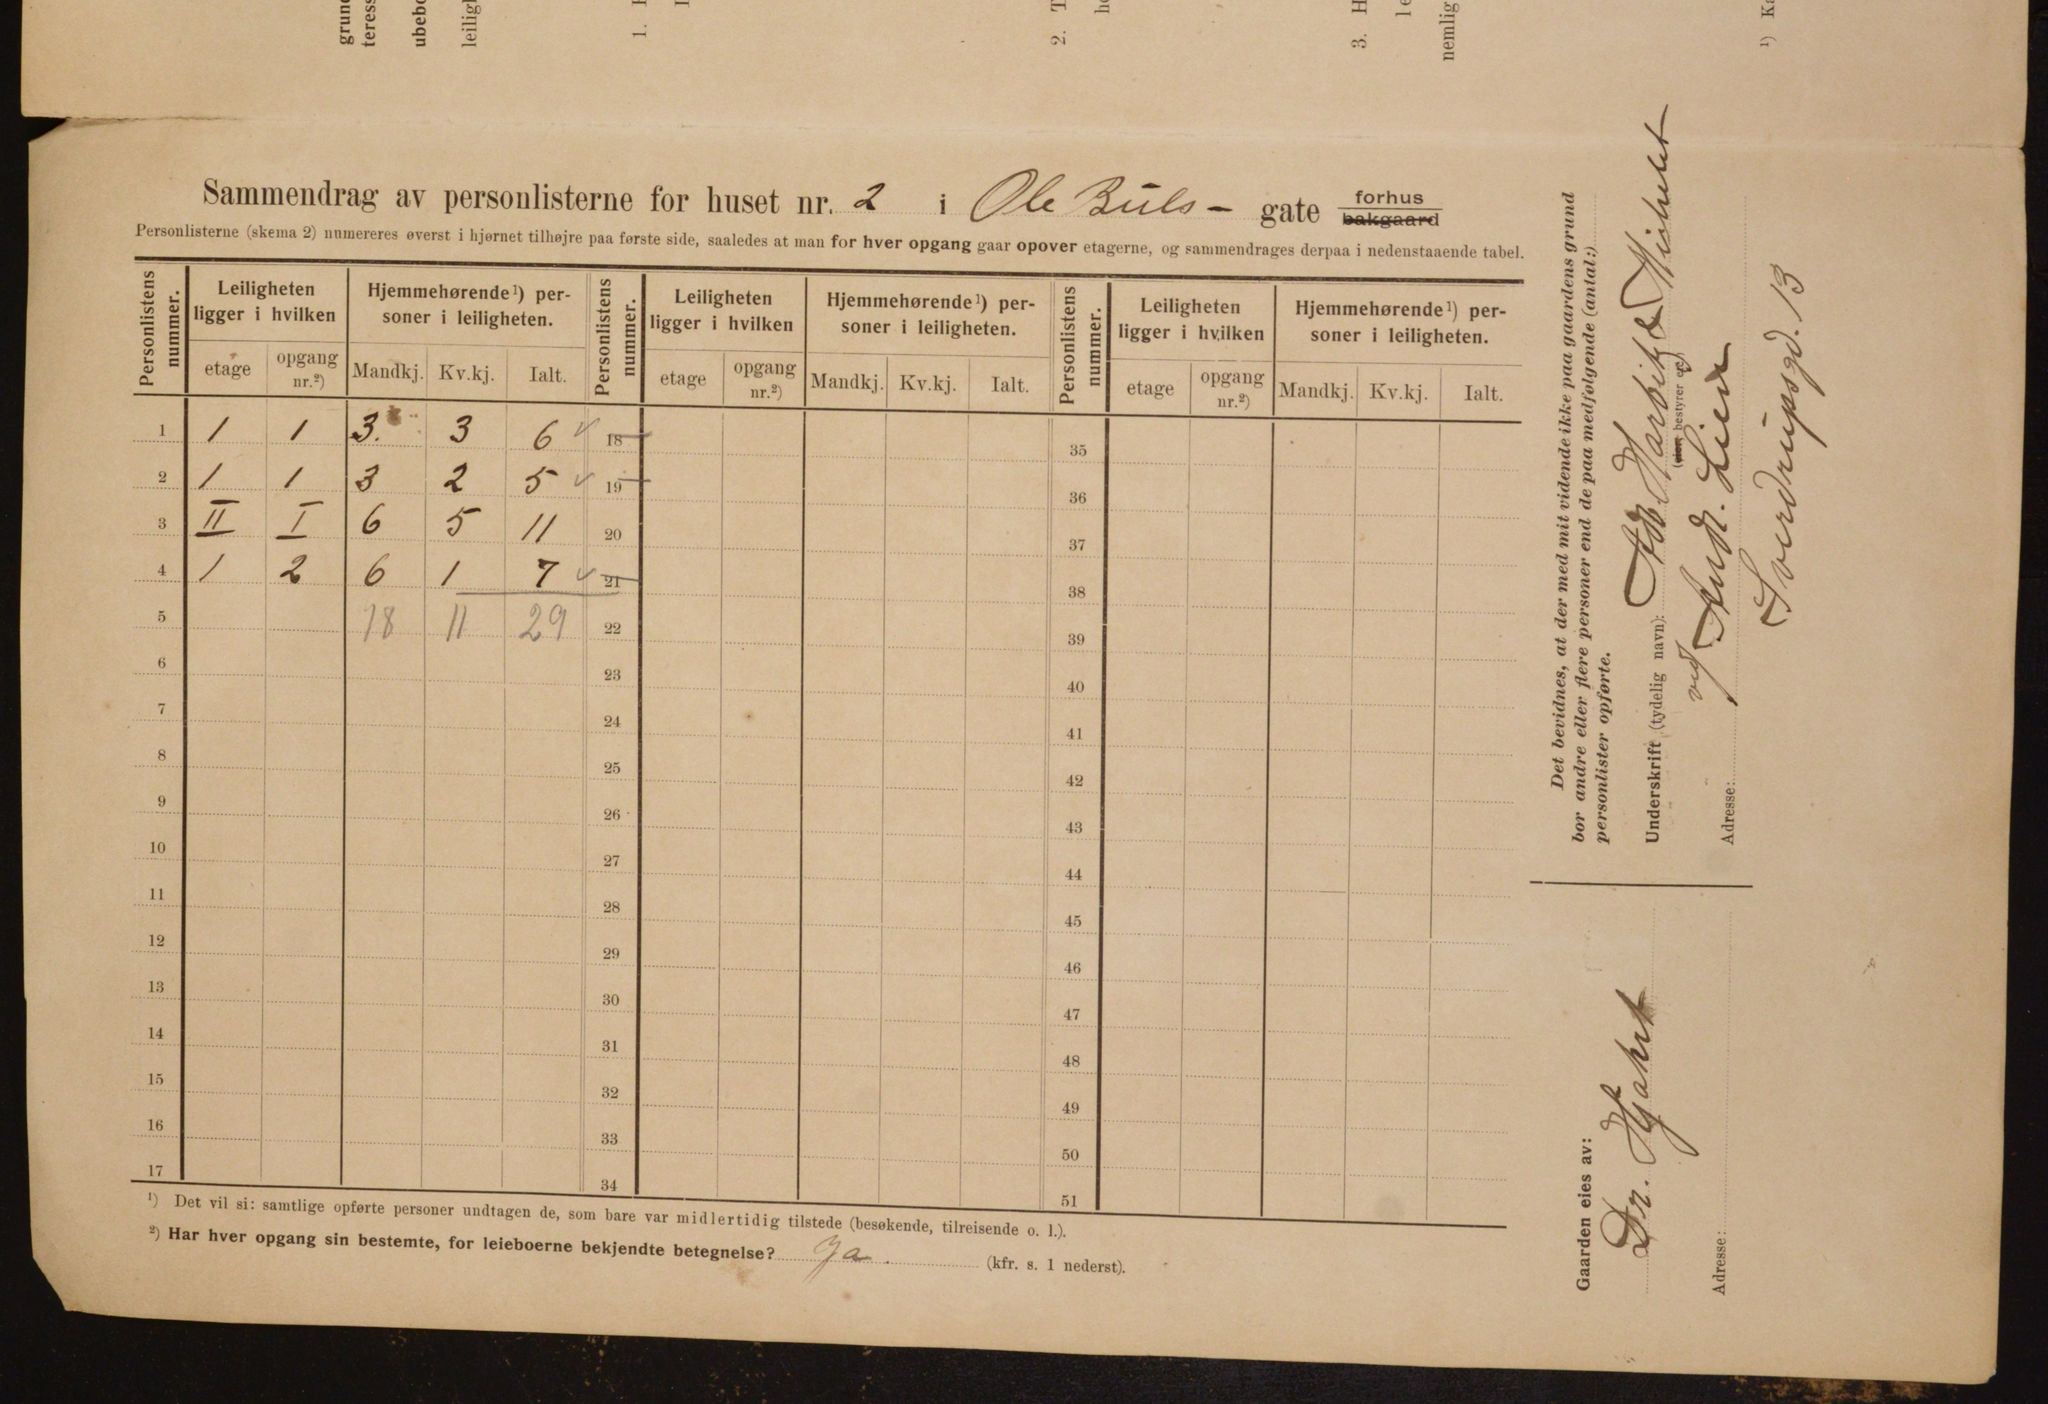 grund
teress
ubebo
leiligh
1.
2. T
3. H
nemlig
¹) Ka
Sammendrag av personlisterne for huset nr. 2 i Ole Buls- gate forhus
bakgaard
Personlisterne (skema 2) numereres øverst i hjørnet tilhøjre paa første side, saaledes at man for hver opgang gaar opover etagerne, og sammendrages derpaa i nedenstaaende tabel.
Personlistens nummer. Leiligheten ligger i hvilken Hjemmehørende¹) personer i leiligheten. Personlistens nummer. Leiligheten ligger i hvilken Hjemmehørende¹) personer i leiligheten. Personlistens nummer. Leiligheten ligger i hvilken Hjemmehørende¹) personer i leiligheten.
etage opgang nr.²) Mandkj. Kv.kj. Ialt. etage opgang nr.²) Mandkj. Kv.kj. Ialt. etage opgang nr.²) Mandkj. Kv.kj. Ialt.
1 1 1 3. 3 6 ✓ 18 35
2 1 1 3 2 5 ✓ 19 36
3 II I 6 5 11 20 37
4 1 2 6 1 7 ✓ 21 38
5 18 11 29 22 39
6 23 40
7 24 41
8 25 42
9 26 43
10 27 44
11 28 45
12 29 46
13 30 47
14 31 48
15 32 49
16 33 50
17 34 51
¹) Det vil si: samtlige opførte personer undtagen de, som bare var midlertidig tilstede (besøkende, tilreisende o. l.).
²) Har hver opgang sin bestemte, for leieboerne bekjendte betegnelse? Ja. (kfr. s. 1 nederst).
Det bevidnes, at der med mit vidende ikke paa gaardens grund
bor andre eller flere personer end de paa medfølgende (antal:)
personlister opførte.
Underskrift (tydelig navn): Harbitz & Michelet
(eier, bestyrer el.)
ved Andr. Lien
Adresse: Sverdrupsgd. 13
Gaarden eies av:
Dr. Hjort
Adresse: